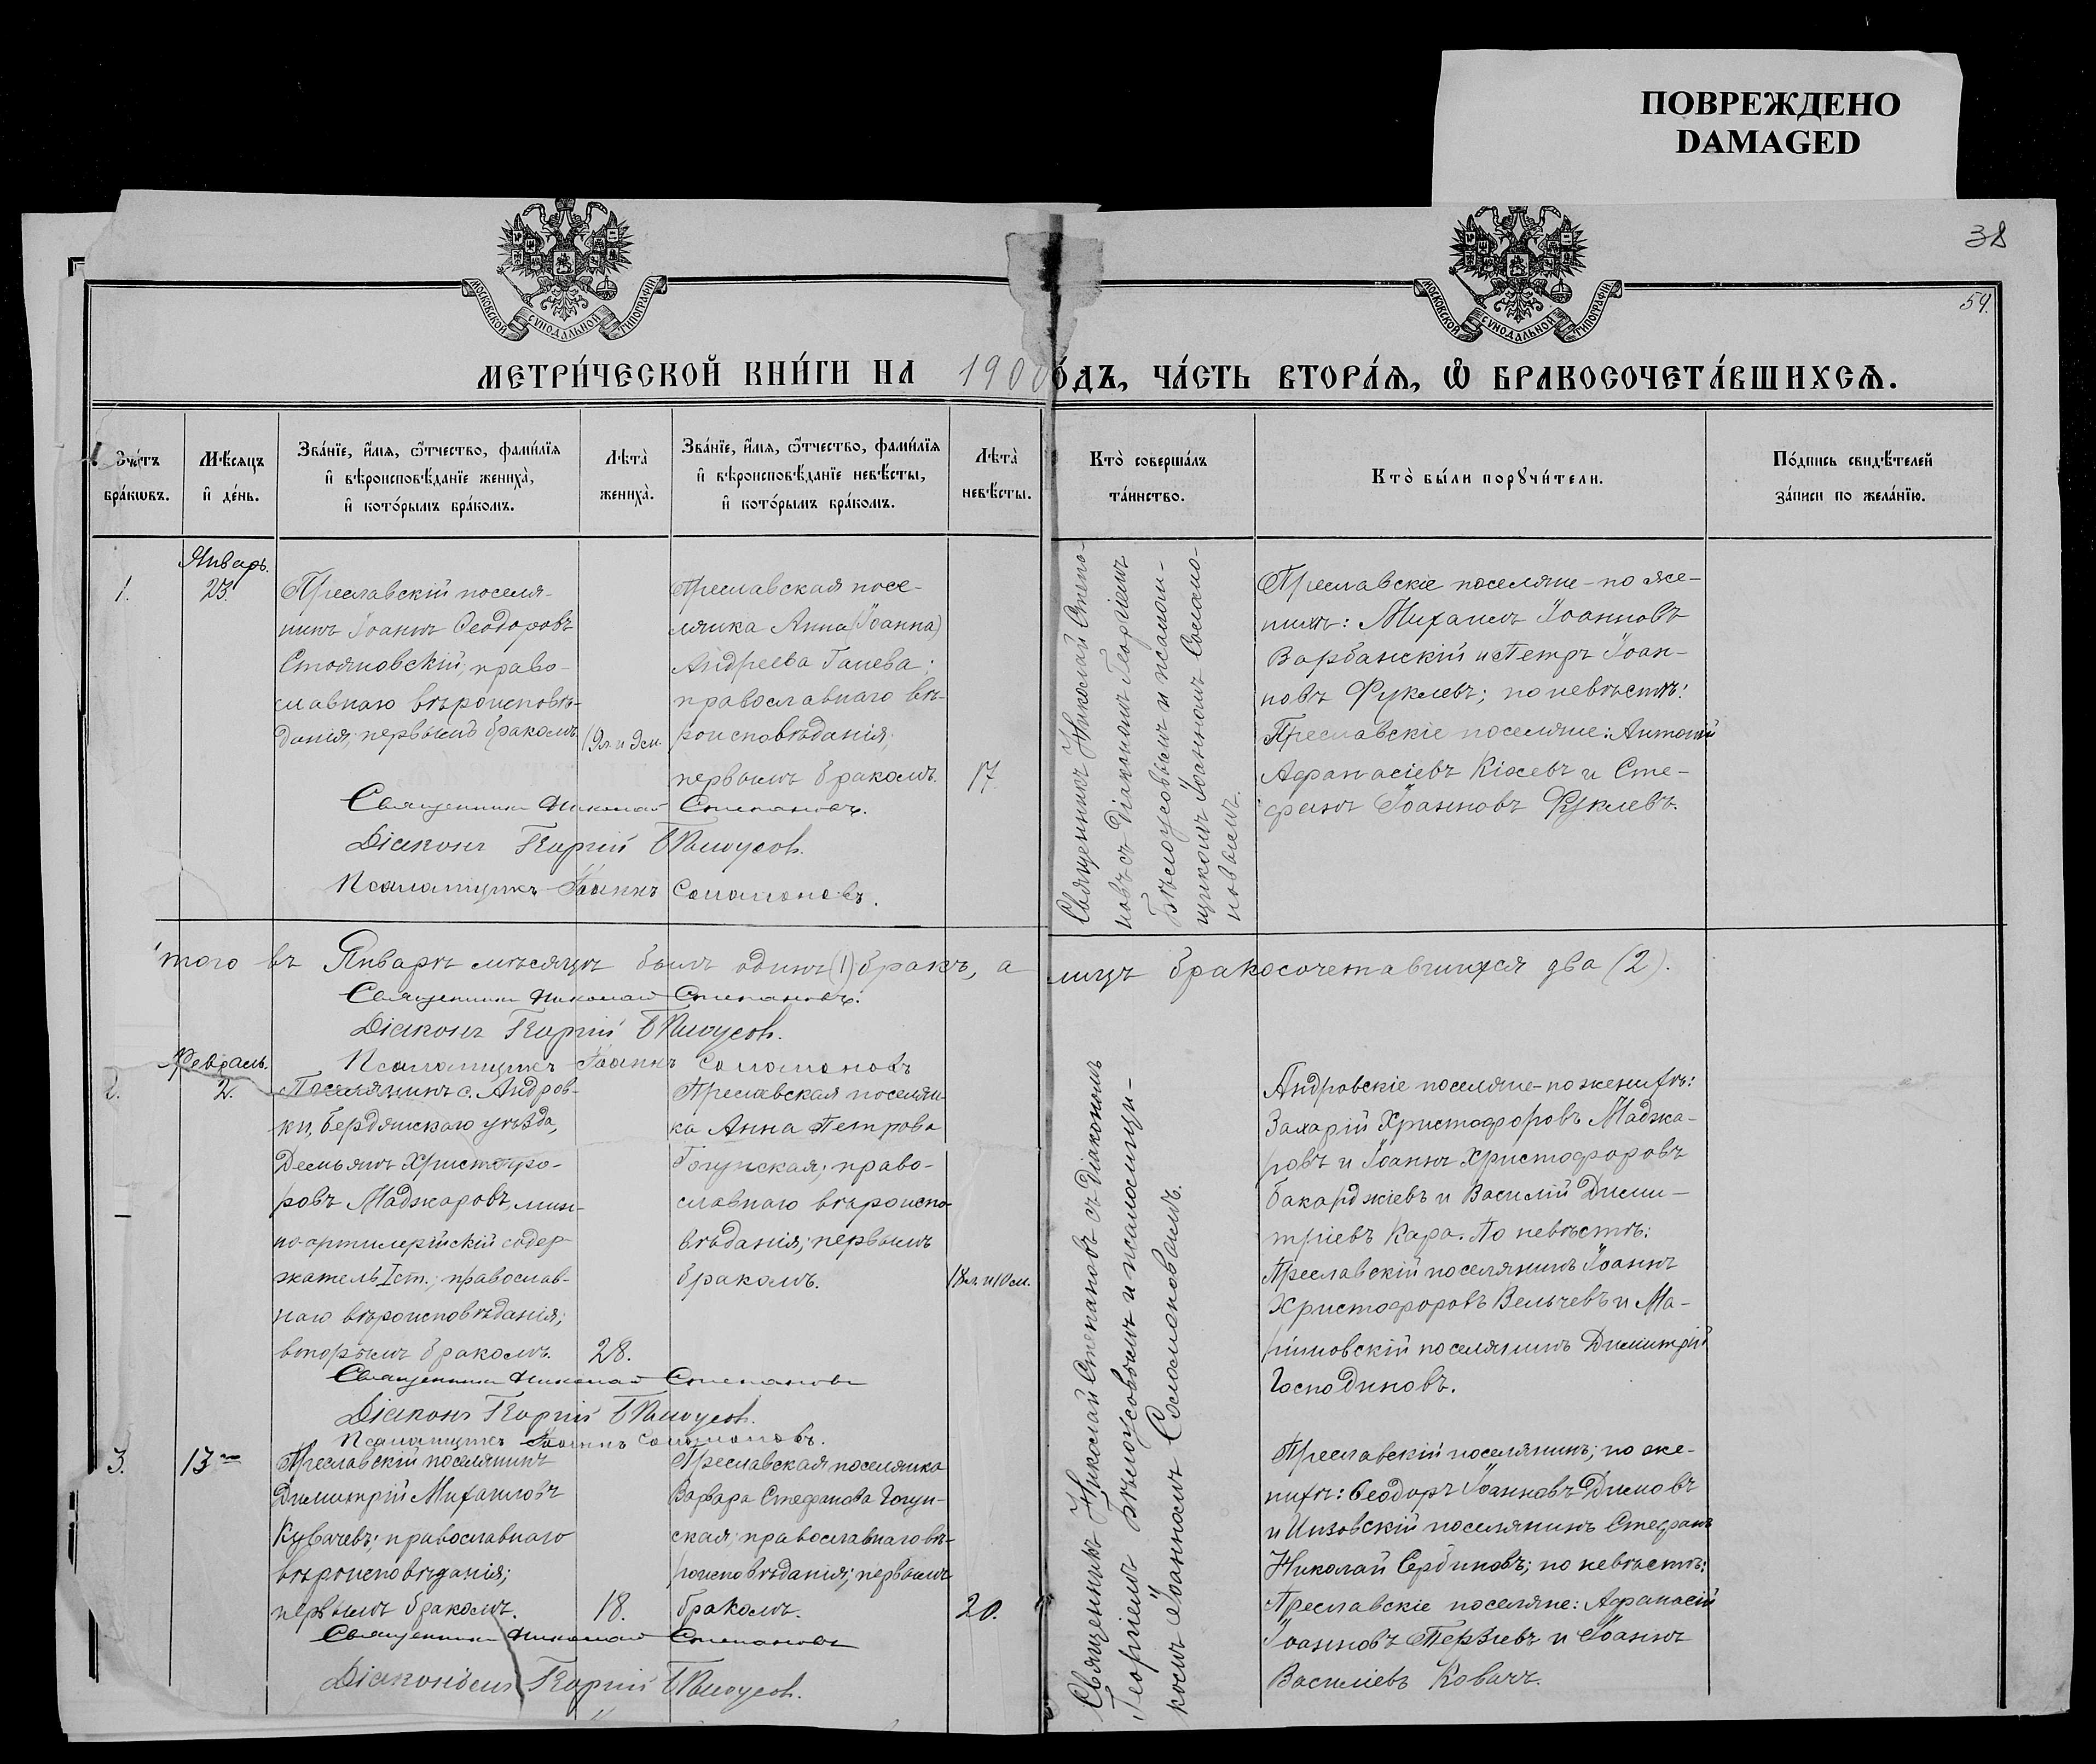 ПОВРЕЖДЕНО
DAMAGED
38
54.
МОСКОВСКОЙ СѴНОДАЛЬНОЙ ТИПОГРАФІИ
МОСКОВСКОЙ СѴНОДАЛЬНОЙ ТИПОГРАФІИ
МЕТРИ́ЧЕСКОЙ КНИ́ГИ НА 1900 О́ДЪ, ЧА́СТЬ ВТОРА́Ѧ, Ѽ БРАКОСОЧЕТА́ВШИХСѦ.
Сче́тъ
бра́кѡвъ.
Мѣ́сяцъ
и҆ де́нь.
Зва́нїе, и҆́мѧ, ѻ҆́тчество, фами́лїѧ
и҆ вѣроисповѣ́данїе жениха̀,
и҆ кото́рымъ бра́комъ.
Лѣта̀
жениха̀.
Зва́нїе, и҆́мѧ, ѻ҆́тчество, фами́лїѧ
и҆ вѣроисповѣ́данїе невѣ́сты,
и҆ кото́рымъ бра́комъ.
Лѣта̀
невѣ́сты.
Кто̀ соверша́лъ
та́инство.
Кто̀ бы́ли порꙋчи́тели.
По́дпись свидѣ́телей
за́писи по жела́нїю.
Январь.
1.
23.
Преславскій поселя-
нинъ Іоаннъ Ѳеодоровъ
Стояновскій, право-
славнаго вѣроисповѣ-
данія, первымъ бракомъ.
19 л. и 9 м.
Преславская посе-
лянка Анна (Іоанна)
Андреева Ганева;
православнаго вѣ-
роисповѣданія,
первымъ бракомъ.
17.
Священникъ Николай Степа-
новъ съ Діакономъ Георгіемъ
Бѣлоусовымъ и псалом-
щикомъ Іоанномъ Соломо-
новымъ.
Преславскіе поселяне - по же-
нихѣ: Михаилъ Іоанновъ
Варбанскій и Петръ Іоан-
новъ Фуклевъ; по невѣстѣ:
Преславскіе поселяне: Антоній
Афанасіевъ Кіосевъ и Сте-
фанъ Іоанновъ Фуклевъ.
Священникъ Николай Степановъ.
Діаконъ Георгій Бѣлоусовъ.
Псаломщикъ Іоаннъ Соломоновъ.
того въ Январѣ мѣсяцѣ былъ одинъ (1) бракъ, а лицъ бракосочетавшихся два (2).
Священникъ Николай Степановъ.
Діаконъ Георгій Бѣлоусовъ.
Псаломщикъ Іоаннъ Соломоновъ
Февраль.
2.
2.
Поселянинъ с. Андров-
ки, Бердянскаго уѣзда,
Демьянъ Христофо-
ровъ Маджаровъ,
жатель I ст.; православ-
наго вѣроисповѣданія;
вторымъ бракомъ.
28.
Преславская поселян-
ка Анна Петрова
Гогунская; право-
славнаго вѣроиспо-
вѣданія; первымъ
бракомъ.
18 л. и 10 м.
Священникъ Николай Степановъ съ Діакономъ
Георгіемъ Бѣлоусовымъ и псаломщи-
комъ Іоанномъ Соломоновымъ.
Андровскіе поселяне - по женихѣ:
Захарій Христофоровъ Маджа-
ровъ и Іоаннъ Христофоровъ
Бакарджіевъ и Василій Дими-
тріевъ Кара. По невѣстѣ:
Преславскій поселянинъ Іоаннъ
Христофоровъ Вельчевъ и Ма-
риновскій поселянинъ Димитрій
Господиновъ.
Священникъ Николай Степановъ
Діаконъ Георгій Бѣлоусовъ.
Псаломщикъ Іоаннъ Соломоновъ.
3.
13
Преславскій поселянинъ
Димитрій Михаиловъ
Кувачевъ; православнаго
вѣроисповѣданія;
первымъ бракомъ.
18.
Преславская поселянка
Варвара Стефанова Гогун-
ская; православнаго вѣ-
роисповѣданія; первымъ
бракомъ.
20.
Преславскій поселянинъ; по же-
нихѣ: Ѳеодоръ Іоанновъ Димовъ
и Инзовскій поселянинъ Стефанъ
Николай Сербиновъ; по невѣстѣ:
Преславскіе поселяне: Афанасій
Іоанновъ Терзіевъ и Іоаннъ
Василіевъ Ковачъ.
Священникъ Николай Степановъ
Георгій Бѣлоусовъ.